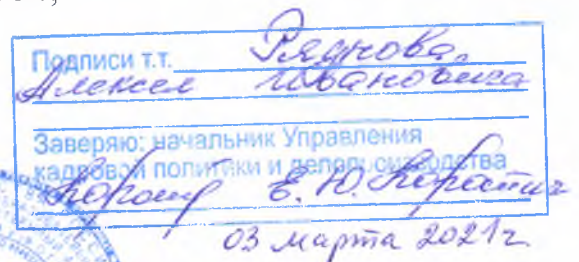 Подписи т.т. Ряднова
Алексея Ивановича
Заверяю: начальник Управления
кадровой политики и делопроизводства
Е.Ю. Коротич
03 марта 2021г.